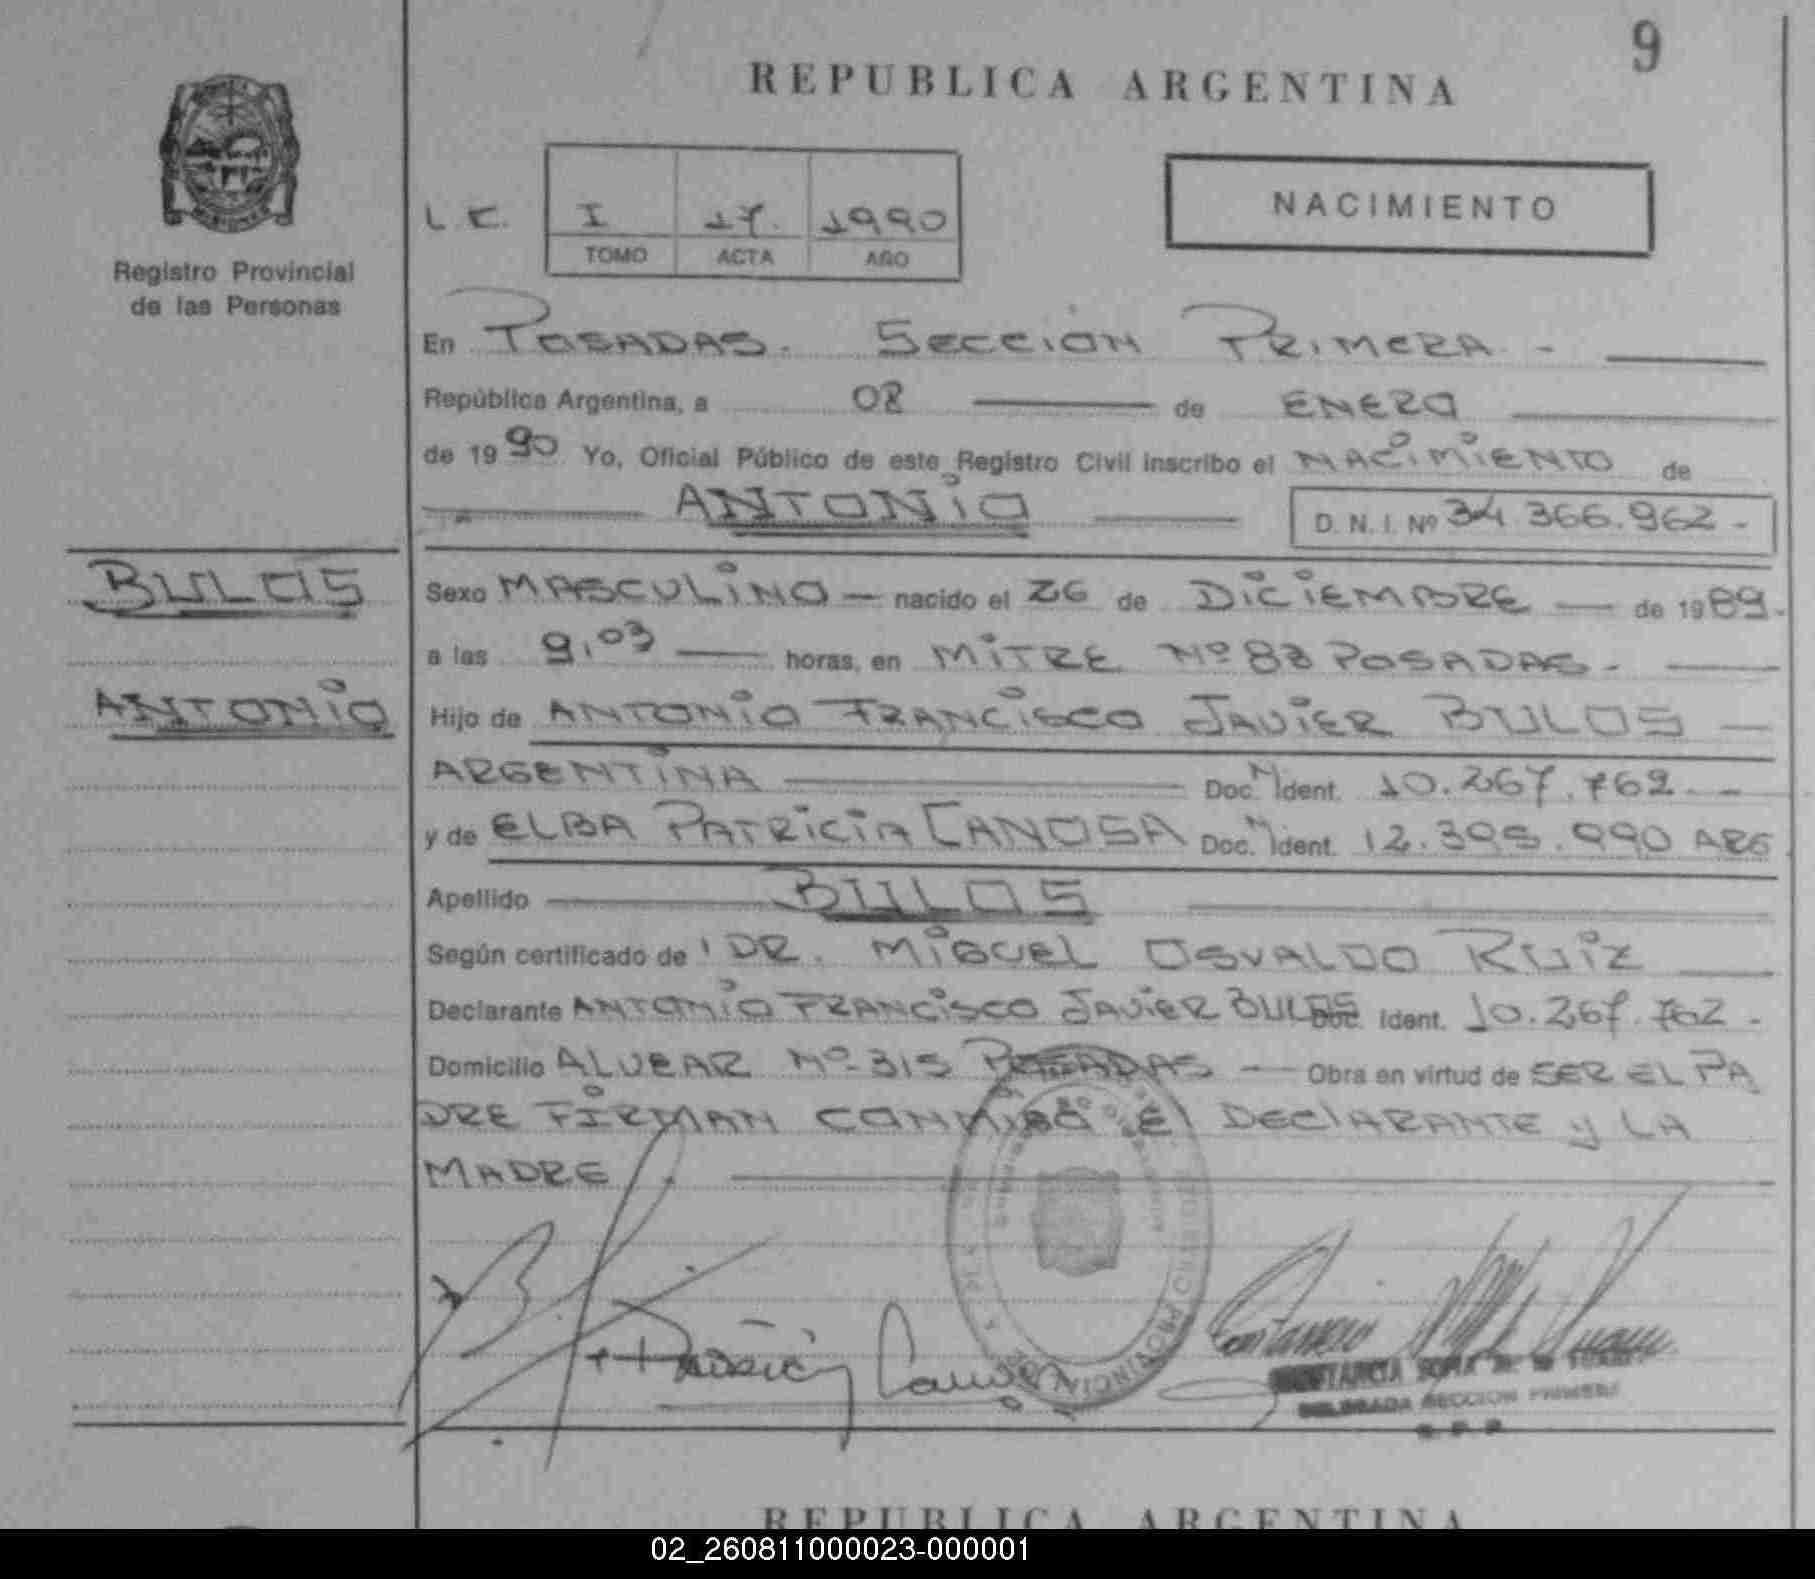 9
REPUBLICA ARGENTINA
Registro Provincial
de las Personas
L.C. I 17. 1990
TOMO ACTA AÑO
NACIMIENTO
En POSADAS. SECCIÓN PRIMERA -
República Argentina, a 08 de ENERO
de 1990 Yo, Oficial Público de este Registro Civil inscribo el NACIMIENTO de
ANTONIO D. N. I. Nº 34.366.962.-
BULOS
ANTONIO
Sexo MASCULINO - nacido el 26 de DICIEMBRE - de 1989.
a las 9,03 horas, en MITRE Nº 83 POSADAS.
Hijo de ANTONIO FRANCISCO JAVIER BULOS -
ARGENTINA Doc. M Ident. 10.267.762.-
y de ELBA PATRICIA CANOSA Doc. M Ident. 12.395.990 ARG
Apellido BULOS
Según certificado de DR. MIGUEL OSVALDO RUIZ
Declarante ANTONIO FRANCISCO JAVIER BULOS Doc. Ident. 10.267.762.
Domicilio ALVEAR Nº 315 POSADAS - Obra en virtud de SER EL PA
DRE FIRMAN CONMIGO El DEClARANTE y LA
MADRE
REGISTRO PROVINCIAL
DELEGADA SECCION PRIMERA
REPUBLICA ARGENTINA
02_260811000023-000001